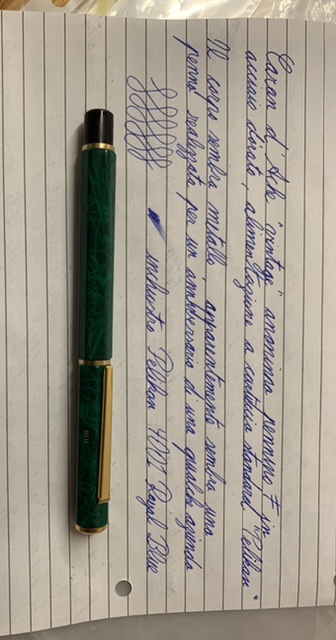 Caran d'Ache "vintage" anonima pennino F in
acciaio dorato, alimentazione a cartuccia standard "Pelikan"
Il corpo sembra metallo, apparentemente sembra una
penna realizzata per un anniversario di una qualche azienda
inchiostro Pelikan 4001 Royal Blue